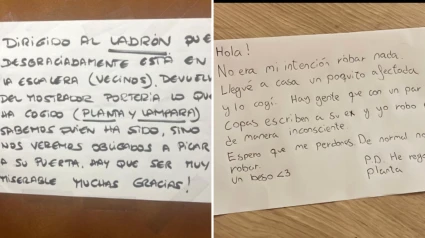 DIRIGIDO AL LADRÓN QUE
DESGRACIADAMENTE ESTÁ EN
LA ESCALERA (VECINOS). DEVUELVE
DEL MOSTRADOR PORTERÍA LO QUE
HA COGIDO (PLANTA Y LÁMPARA)
SABEMOS QUIEN HA SIDO, SINO
NOS VEREMOS OBLIGADOS A PICAR
A SU PUERTA. HAY QUE SER MUY
MISERABLE MUCHAS GRACIAS!
Hola!
No era mi intención robar nada.
Llegué a casa un poquito afectada
y lo cogí. Hay gente que con un par
copas escriben a su ex y yo robo
de manera inconsciente.
Espero que me perdones. De normal no
robar.
un beso <3
P.D. He rega
planta